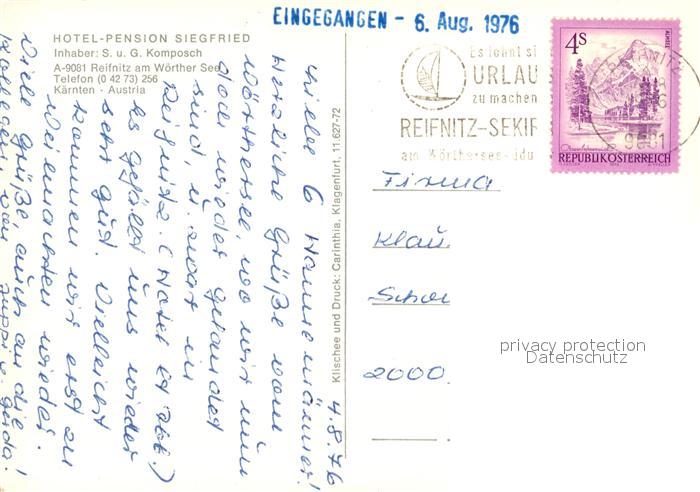 EINGEGANGEN - 6. Aug. 1976
HOTEL-PENSION SIEGFRIED
Inhaber: S. u. G. Komposch
A-9081 Reifnitz am Wörther See
Telefon (0 42 73) 256
Kärnten - Austria
Es lohnt si
URLAU
zu machen
REIFNITZ-SEKIR
am Wörthersee-Südu
4S
ALMSEE
REPUBLIK ÖSTERREICH
9081
4.8.76
Herzliche Grüße vom
Wörthersee, wo wir nun
wieder gelandet
sind, u. zwar in
Reifnitz. (Hotel
Es gefällt uns wieder
sehr gut. Vielleicht
kommen wir erst zu
Weinachten wieder.
Viele Grüße, auch an die
Kollegen von
Klischee und Druck: Carinthia, Klagenfurt, 11.627-72
Firma
Klau
Scho
2000
privacy protection
Datenschutz